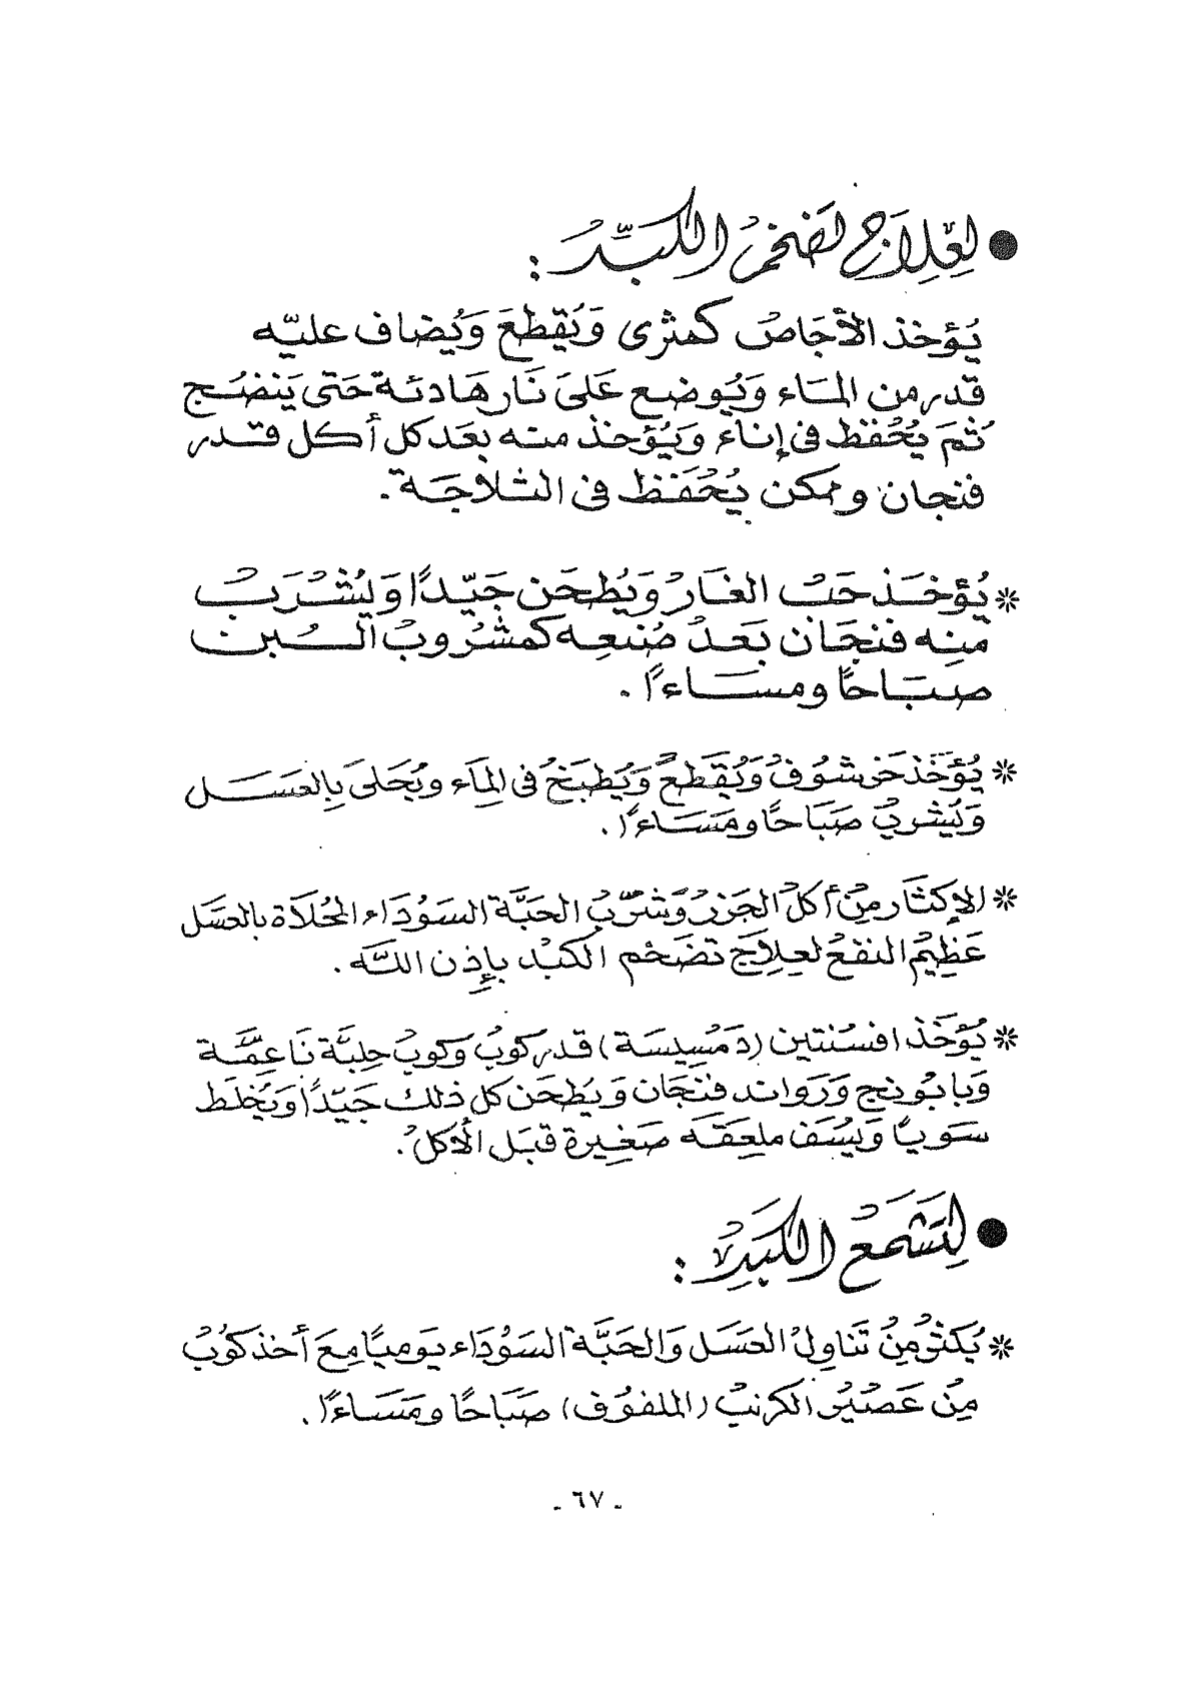 ● لِعِلاَجِ تضخمُ الكبِّدُ :
يُؤخذ الأجَاصُ كمثرى وَيُقطعَ وَيُضاف عليّه
قدر من المَاء وَيُوضع عَلىَ نَار هَادئة حَتى يَنضُج
ثُمَ يُحُفظ فى إناَء وَيُؤخذ منه بعَد كل أكل قدر
فنجان وممكن يُحُفَظ فى الثلاجَة .
* يُؤخَذ حَبُ الغَارُ وَيُطحَن جَيّدًا وَيُشْرَبُ
منِه فنجَان بَعَدُ صُنعِه كمشُروبُ البُن
صبَاحًا ومساءًا .
* يُؤَخَذ خَرشُوفُ وَيُقَطعُ وَيُطبَخُ فى المِاَء ويُحَلىَ بِالعسَل
وَيُشربُ صَبَاحًا ومَسَاءًا .
* الإكثَار مِنُ أكلُ الجَزرُ وَشرّبُ الحَبَّة السَوُدَاء المُحُلاَة بالعسَل
عَظِيمُ النفعُ لعِلاِجَ تضَخْم الكبُد بإِذن اللَّه .
* يُؤخَذ افسُنتين (دَمسِيسَة) قدر كوُبُ وَكوبُ حِلبَّة نَاعِمَّة
وَبابُونج وَرَواند فنُجَان وَيُطحَن كل ذلك جَيّدًا وَيُخلَط
سَويًا وَيسُف ملعِقَه صَغِيرة قبَل الأكلُ .
● لِتَشَمعُ الكَبَدِ :
* يُكَثرُ مِنُ تَناوِلُ العسَل وَالحَبَّة السَوُدَاء يَوميًا مِعَ أخذ كوُبُ
مِنُ عَصُيرُ الكرنبُ (الملفوُف) صَبَاحًا ومَسَاءًا .
- ٦٧ -